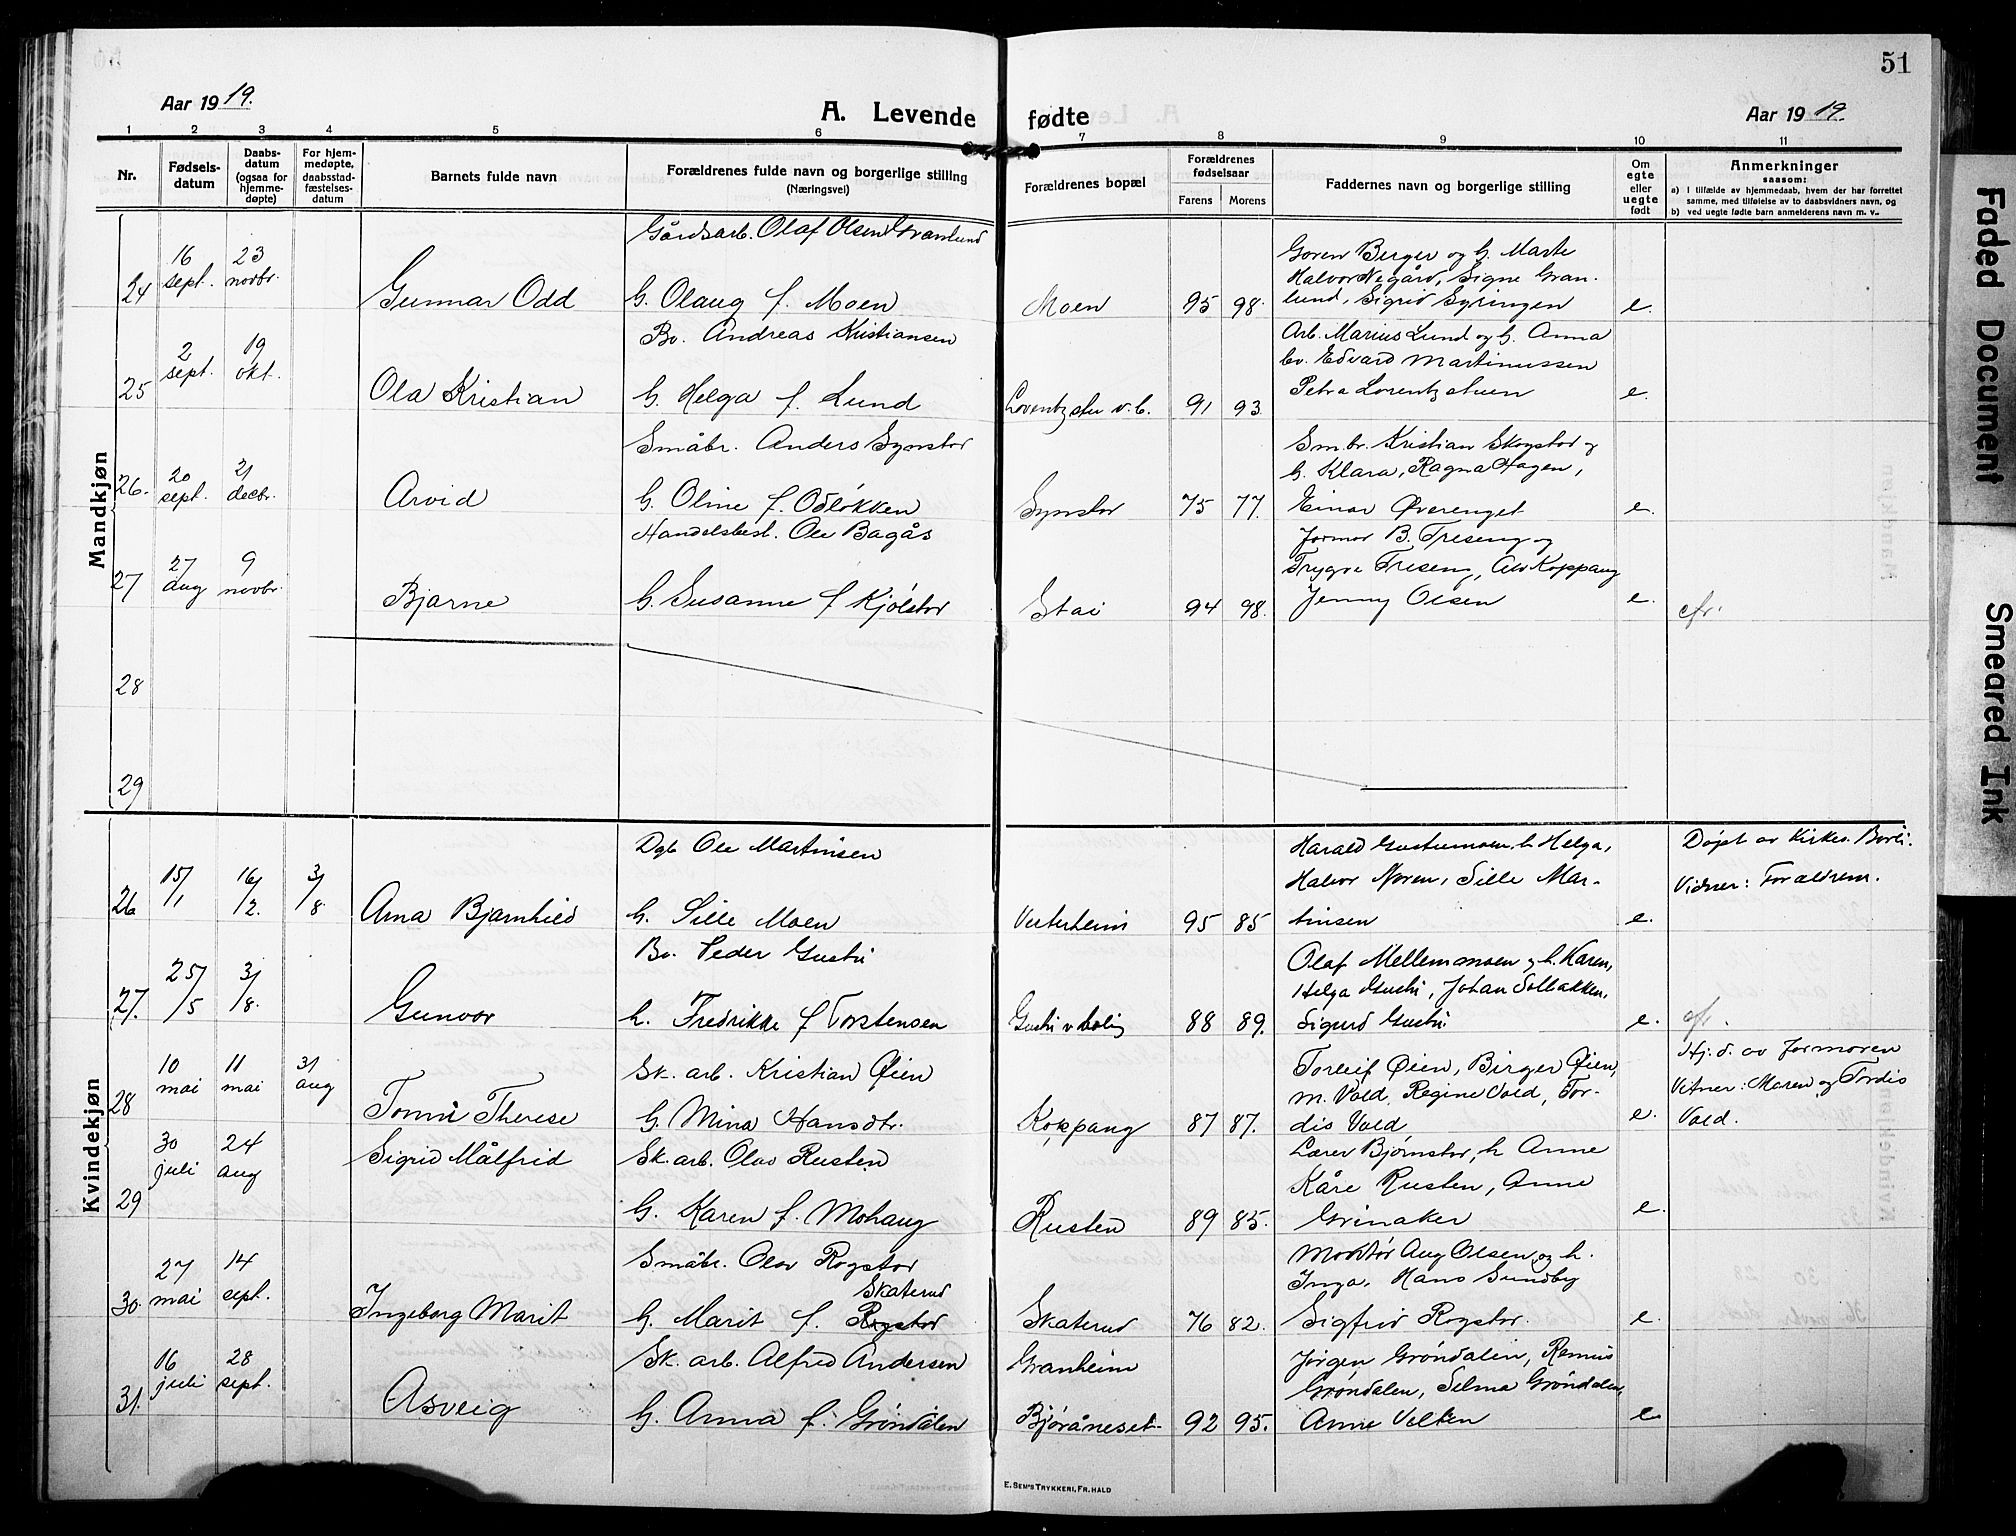 51
Aar 1919.
A. Levende fødte
Aar 1919.
1 2 3 4 5 6 7 8 9 10 11
Nr.
Fødsels-
datum
Daabs-
datum
(ogsaa for
hjemme-
døpte)
For hjem-
medøpte,
daabsstad-
fæstelses-
datum
Barnets fulde navn
Forældrenes fulde navn og borgerlige stilling
(Næringsvei)
Forældrenes bopæl
Forældrenes
fødselsaar
Farens Morens
Faddernes navn og borgerlige stilling
Om
egte
eller
uegte
født
Anmerkninger
saasom:
a) i tilfælde av hjemmedaab, hvem der har forrettet
samme, med tilføielse av to daabsvidners navn, og
b) ved uegte fødte barn anmelderens navn m. v.
Mandkjøn
24
16
sept.
23
novbr.
Gunnar Odd
Gårdsarb. Olaf Olsen Granlund
G. Olaug f. Moen
Moen
95 98.
Goren Berger og h. Marte
Halvor Negård, Signe Gran-
lund, Sigrid Gyringen
e.
25
2
sept.
19
okt.
Ola Kristian
Bv. Andreas Kristiansen
G. Helga f. Lund
Lorentzstu v.b.
91 93
Arb. Marius Lund og h. Anna
bv. Edvard Martinussen
Petra Lorentzstuen
e.
26.
20
sept.
21
decbr.
Arvid
Småbr. Anders Synstor
G. Oline f. Odløkken
Synstor
75 77.
Sm.br. Kristian Skogstor og
h. Klara, Ragna Hagen,
Einar Øverenget
e.
27
27
aug
9
novbr.
Bjarne
Handelsbest. Ole Bagås
G. Susanne f. Kjølstor
Stai
94 98.
Jormor B. Treseng og
Trygve Treseng, Alv Koppang
Jenny Olsen
e.
efr.
28
29
Kvindekjøn
26
15/1
16/2.
3/8
Arna Bjarnhild
Dgb Ole Martinsen
G. Sille Moen
Vesterheim
95 85
Harald Gustumoen, h. Helga,
Halvor Noren, Sille Mar-
tinsen
e.
Døpt av Kirkes. Borli.
Vidner: Forældrene.
27.
25/5
3/8.
Gunvor
Bv. Peder Gustu
h. Fredrikke f Torstensen
Gustu v bolig
88 89.
Olaf Mellemmoen og h. Karen,
Helga Gustu, Johan Solbakken,
Sigurd Gustu
e.
efr.
28
10
mai
11
mai
31
aug
Tomi Therese
Sk. arb. Kristian Øien
G. Mina Hansdtr.
Koppang
87 87.
Torleif Øien, Birger Øien,
M. Vold, Regine Vold, Tor-
dis Vold
e.
Hj. d. av Jormoren
Vitner: Maren og Tordis
Vold.
29
30
juli
24
aug
Sigrid Målfrid
Sk. arb. Olav Rusten
G. Karen f. Mohaug
Rusten
89 85.
Lærer Bjørnstor, h Anne
Kåre Rusten, Anne
Grinaker
e.
30.
27
mai
14
sept.
Ingeborg Marit
Småbr. Olav Rogstor
Skaterud
G. Marit f. Rogstor
Skaterud
76 82.
Montør Aug Olsen og h.
Inga, Hans Sundby
Sigfrid Rogstor.
e.
31.
16
juli
28
sept.
Asveig
Sk. arb. Alfred Andersen
G. Anna f. Grøndalen
Granheim
Bjøråneset
92 95.
Jørgen Grøndalen, Remus
Grøndalen, Selma Grøndalen,
Anne Velten
e
E. SEM'S TRYKKERI, FR. HALD
Faded Document
Smeared Ink